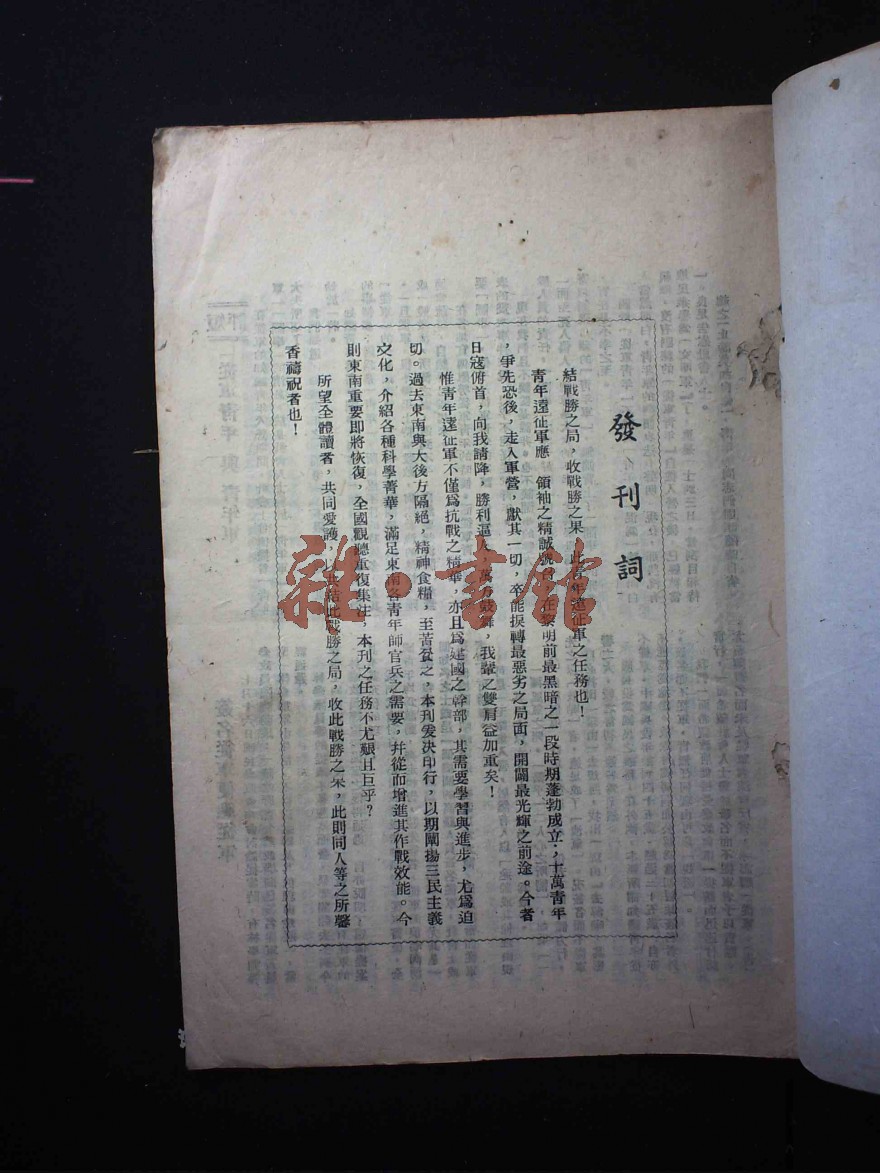 發刊詞
結戰勝之局，收戰勝之果，此青年遠征軍之任務也！
青年遠征軍應　領袖之精誠號召，在黎明前最黑暗之一段時期蓬勃成立，十萬青年
，爭先恐後，走入軍營，獻其一切，卒能捩轉最惡劣之局面，開闢最光輝之前途。今者
日寇俯首，向我請降，勝利逼人，萬方鼓舞，我輩之雙肩益加重矣！
惟青年遠征軍不僅爲抗戰之精華，亦且爲建國之幹部，其需要學習與進步，尤爲迫
切。過去東南與大後方隔絕，精神食糧，至苦貧乏，本刊爰決印行，以期闡揚三民主義
文化，介紹各種科學菁華，滿足東南各青年師官兵之需要，幷從而增進其作戰效能。今
則東南重要卽將恢復，全國觀聽重復集注，本刊之任務不尤艱且巨乎？
所望全體讀者，共同愛護，以共結此戰勝之局，收此戰勝之果，此則同人等之所馨
香禱祝者也！
雜·書館